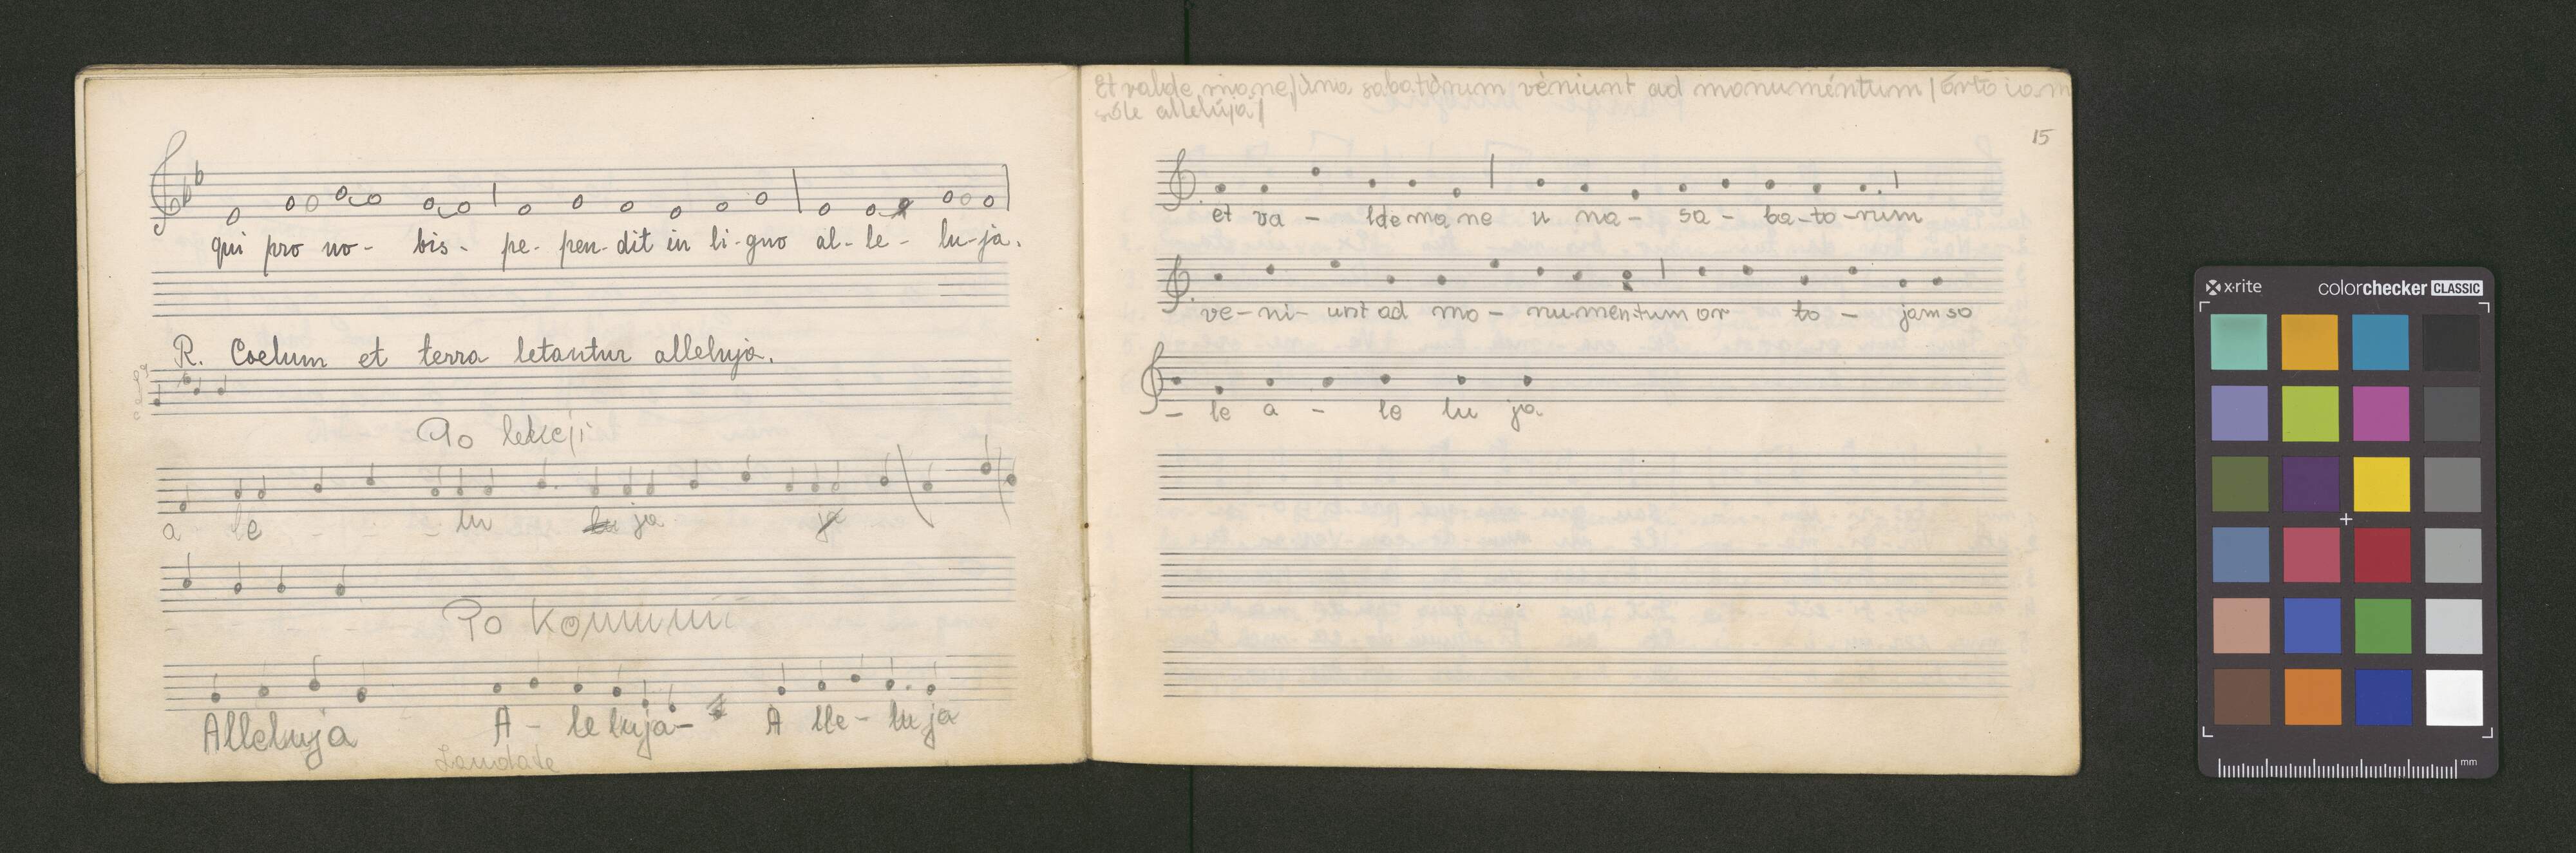 qui pro no- bis- pe- pen- dit in li- gno al- le- lu- ja.
R. Coelum et terra letantur alleluja.
Po lekcji
a le - - - lu ja
Po Komunii
Alleluja A - le luja- A lle- lu ja
Laudate
Et valde mane/úna sabatórum véniunt ad monuméntum/órto iam
sóle allelúja/
15
et va - lde ma ne u na - sa - ba-to-rum
ve-ni- unt ad mo - nu-men-tum or to - jam so
- le a - le lu ja
x-rite colorchecker CLASSIC
mm